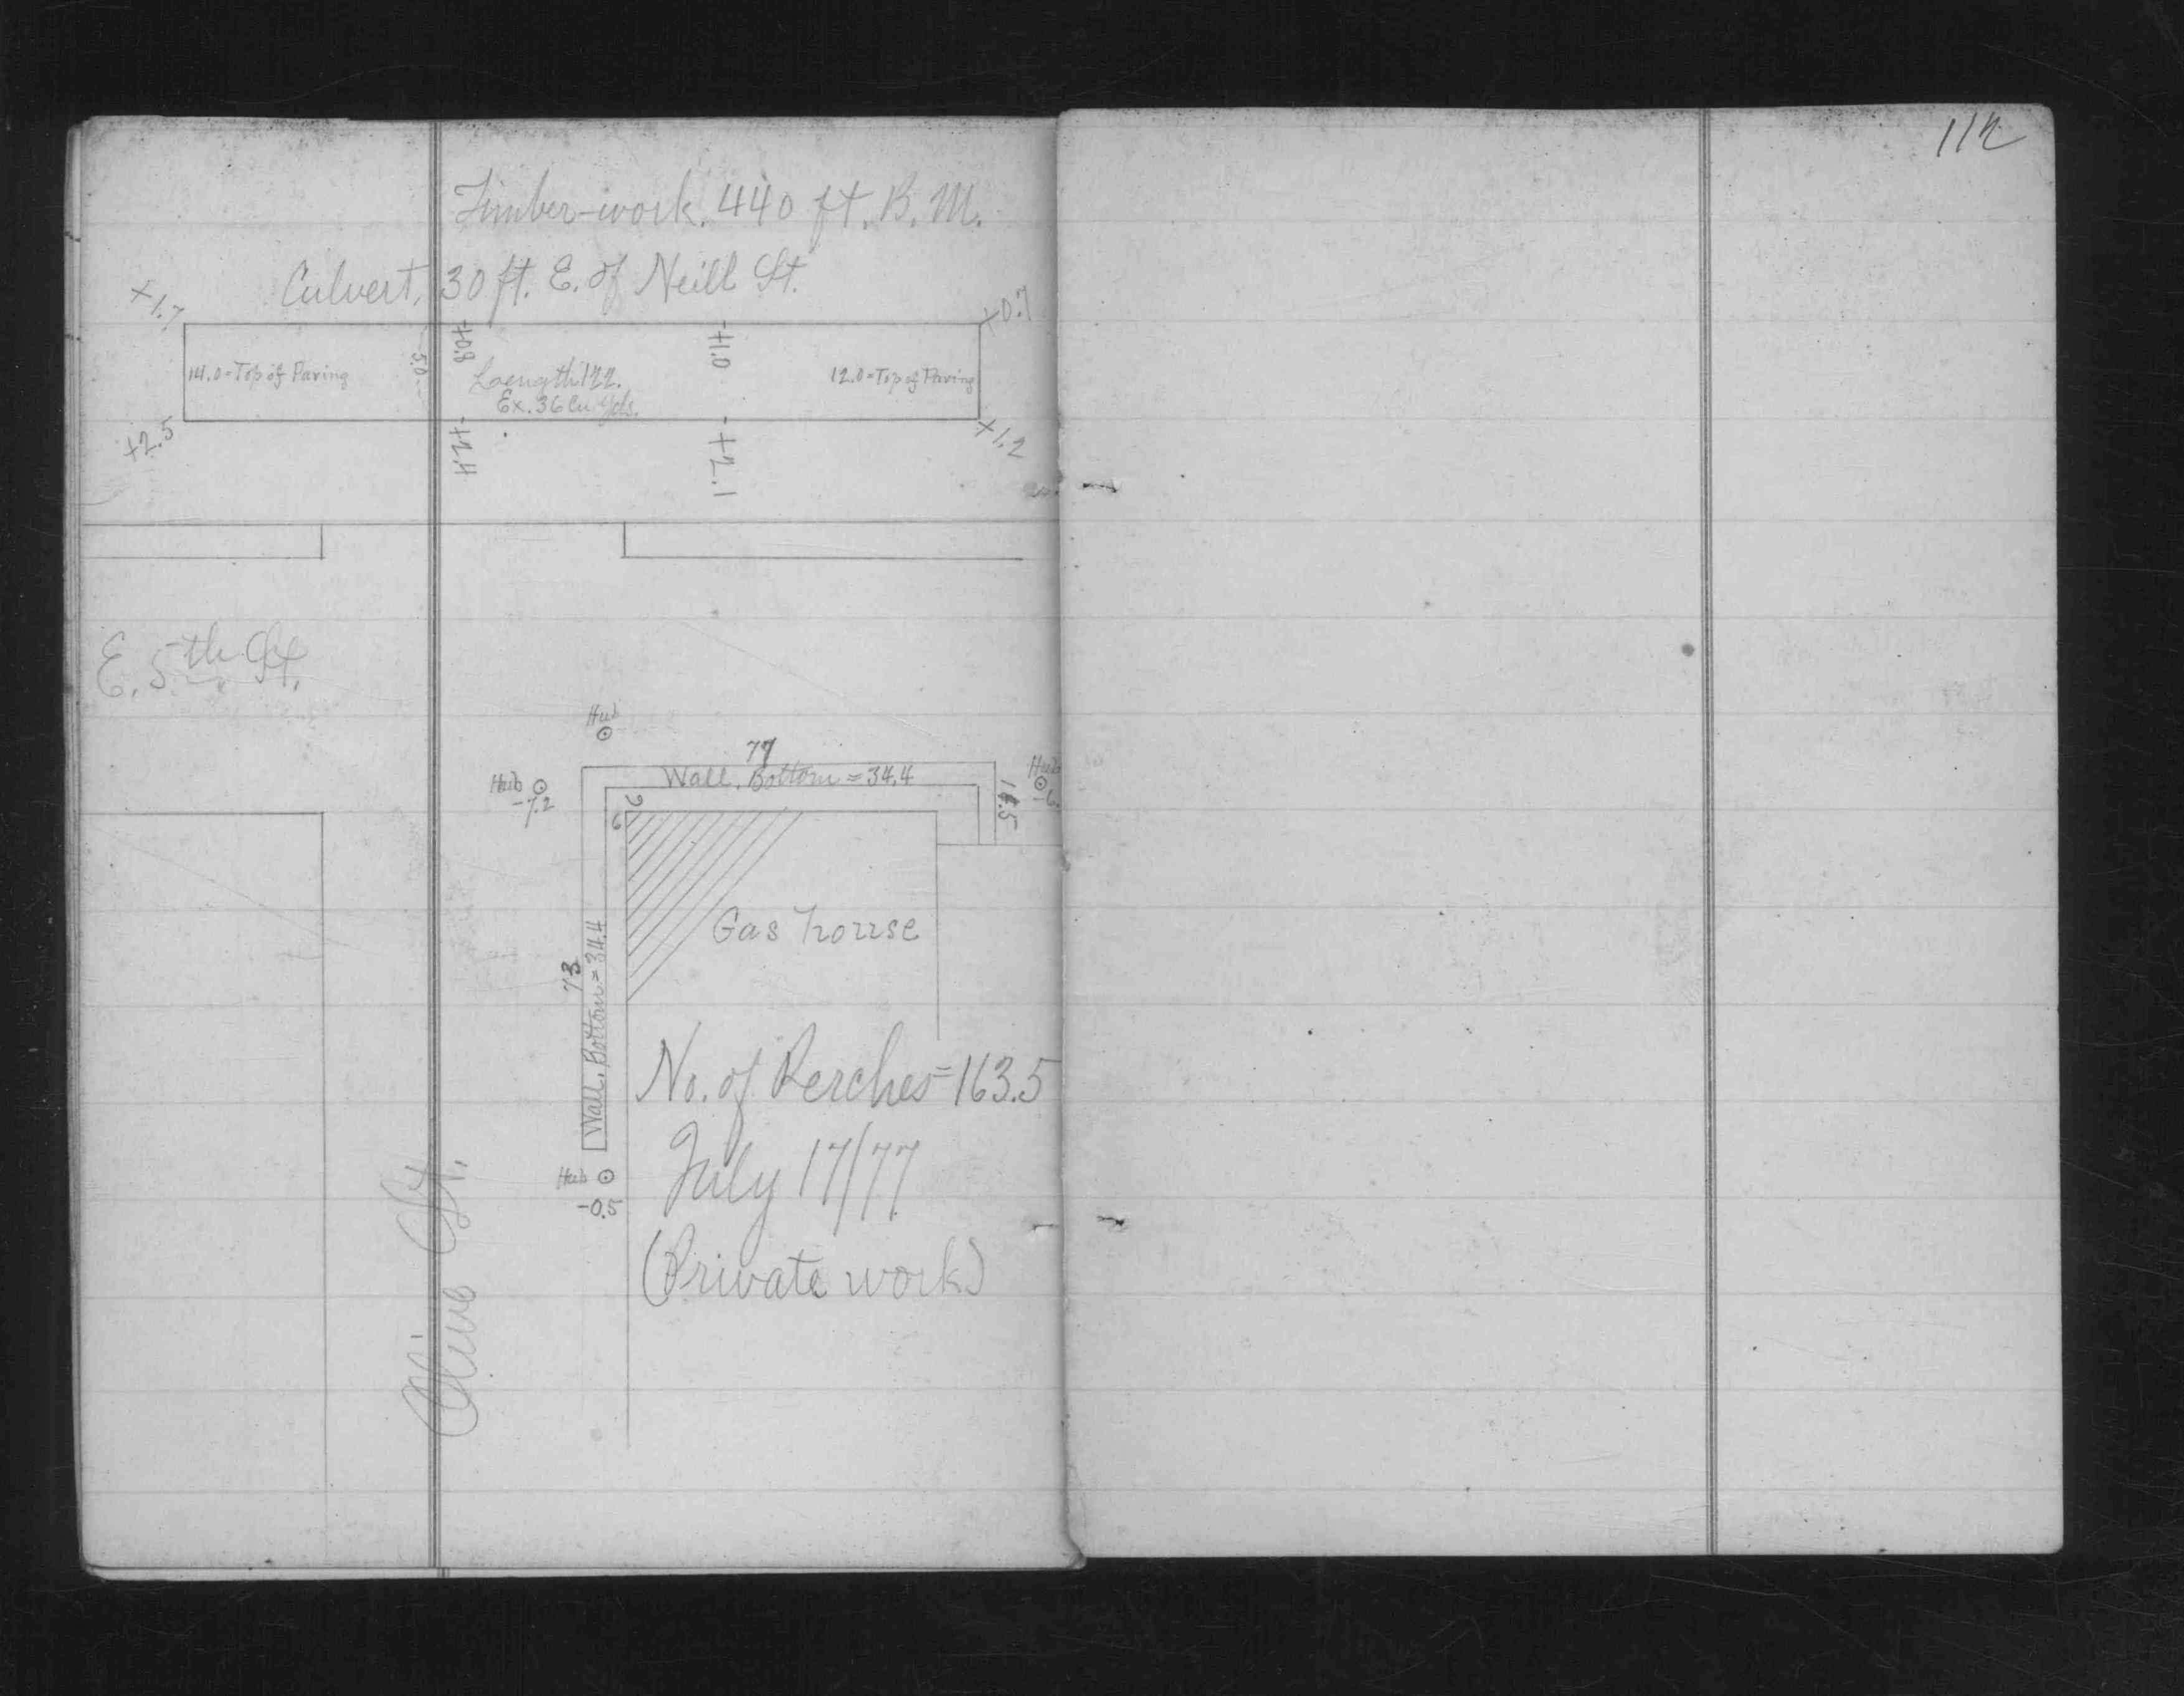 112
Timber-work. 440 ft. B. M.
Culvert, 30 ft. E. of Neill St.
+1.7
+0.8
+1.0
+0.7
14.0=Top of Paving
5.0
Length 122.
12.0=Top of Paving
Ex. 36 Cu Yds.
+2.5
+2.4
+2.1
+1.2
E. 5th St.
Hub
77
Wall, Bottom = 34.4
Hub
-7.2
Hub
-6.
6
6
Gas house
73
Wall, Bottom = 34.4
No. of Perches = 163.5
July 17/77
Hub
-0.5
(Private work)
Olive St.